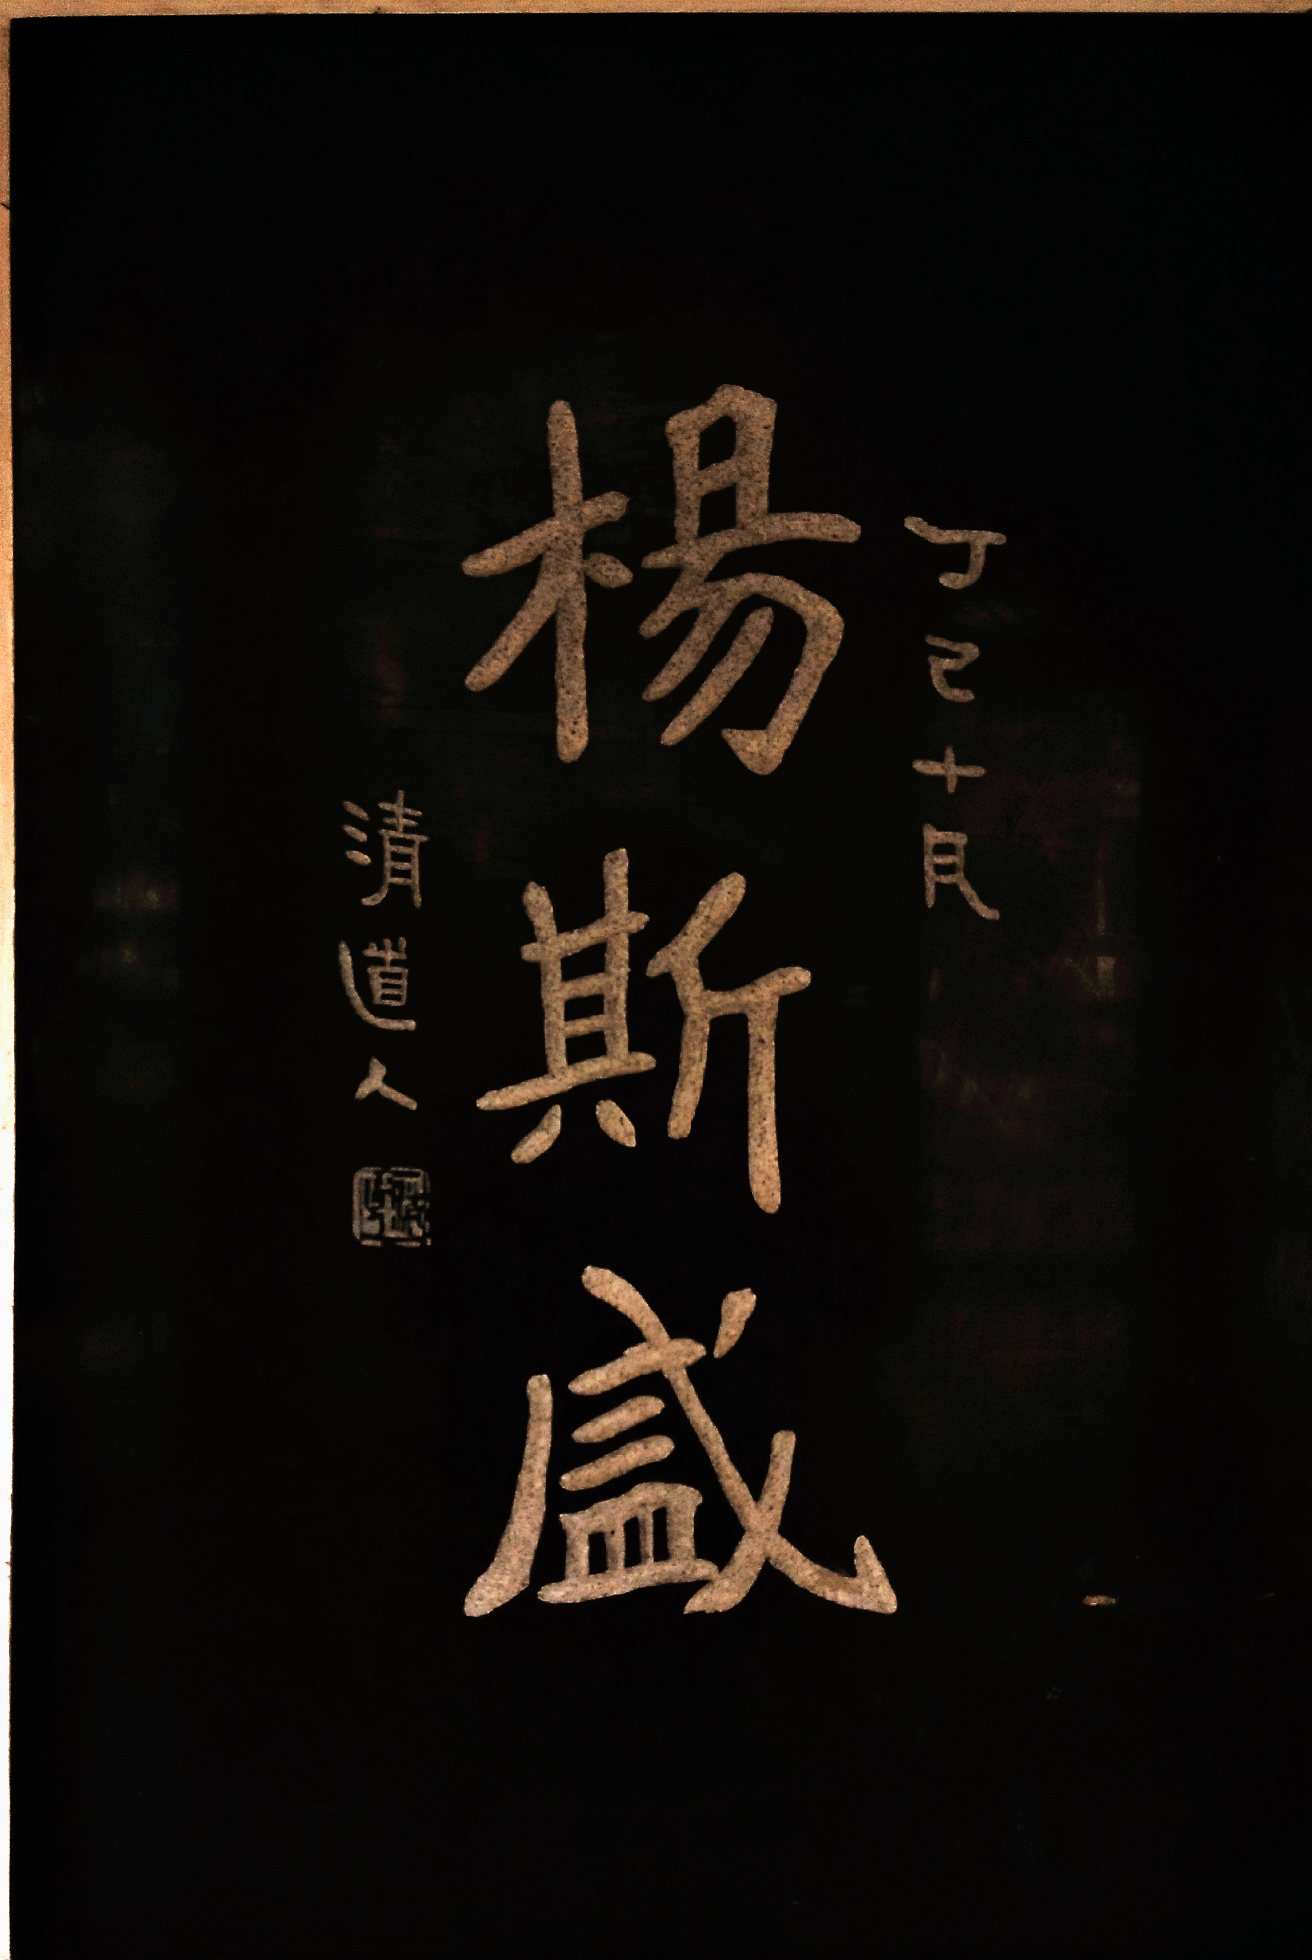 丁巳十月
楊斯盛
清道人